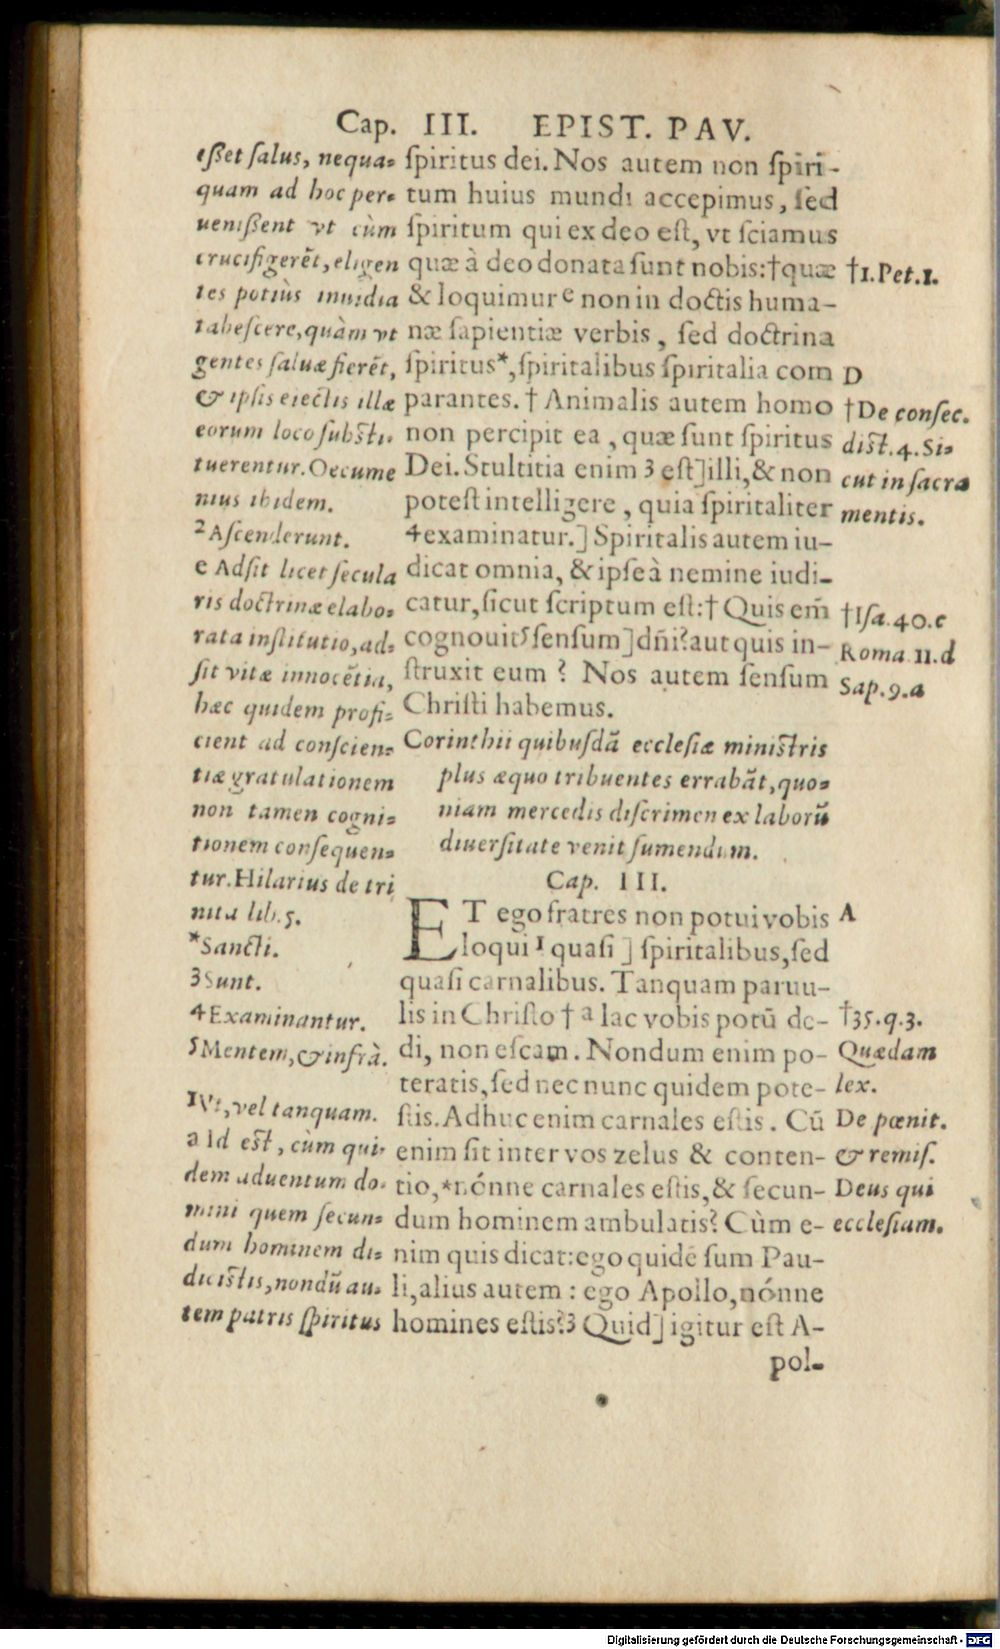 Cap. III. EPIST. PAV.
eßet ſalus, nequa-
quam ad hoc per-
uenißent vt cùm
crucifigerẽt, eligen
tes potiùs inuidia
tabeſcere, quàm vt
gentes ſaluæ fierẽt,
& ipſis eiectis illæ
eorum loco ſubſti-
tuerentur. Oecume
nius ibidem.
2 Aſcenderunt.
e Adſit licet ſecula
ris doctrinæ elabo-
rata inſtitutio, ad-
ſit vitæ innocẽtia,
hæc quidem profi-
cient ad conſcien-
tiæ gratulationem
non tamen cogni-
tionem conſequen-
tur. Hilarius de tri
nita lib. 5.
*Sancti.
3 Sunt.
4 Examinantur.
5 Mentem, & infrà.
1 Vt, vel tanquam.
a Id eſt, cùm qui-
dem aduentum do-
mini quem ſecun-
dum hominem di-
diciſtis, nondũ au-
tem patris ſpiritus
ſpiritus dei. Nos autem non ſpiri-
tum huius mundi accepimus, ſed
ſpiritum qui ex deo eſt, vt ſciamus
quæ à deo donata ſunt nobis: † quæ
& loquimur e non in doctis huma-
næ ſapientiæ verbis, ſed doctrina
ſpiritus*, ſpiritalibus ſpiritalia com
parantes. † Animalis autem homo
non percipit ea, quæ ſunt ſpiritus
Dei. Stultitia enim 3 eſt] illi, & non
poteſt intelligere, quia ſpiritaliter
4 examinatur.] Spiritalis autem iu-
dicat omnia, & ipſe à nemine iudi-
catur, ſicut ſcriptum eſt: † Quis em̃
cognouit 5 ſenſum] dñi? aut quis in-
ſtruxit eum? Nos autem ſenſum
Chriſti habemus.
Corinthii quibuſdã eccleſiæ miniſtris
plus æquo tribuentes errabãt, quo-
niam mercedis diſcrimen ex laborũ
diuerſitate venit ſumendum.
Cap. III.
ET ego fratres non potui vobis
loqui 1 quaſi] ſpiritalibus, ſed
quaſi carnalibus. Tanquam paruu-
lis in Chriſto † a lac vobis potũ de-
di, non eſcam. Nondum enim po-
teratis, ſed nec nunc quidem pote-
ſtis. Adhuc enim carnales eſtis. Cũ
enim ſit inter vos zelus & conten-
tio, *nónne carnales eſtis, & ſecun-
dum hominem ambulatis? Cùm e-
nim quis dicat: ego quidẽ ſum Pau-
li, alius autem: ego Apollo, nónne
homines eſtis? 3 Quid] igitur eſt A-
pol-
†1. Pet. 1.
D
†De conſec.
diſt. 4. Si-
cut in ſacra
mentis.
†Iſa. 40. c
Roma. 11. d
Sap. 9. a
A
†35. q. 3.
Quædam
lex.
De pœnit.
& remiſ.
Deus qui
eccleſiam.
Digitalisierung gefördert durch die Deutsche Forschungsgemeinschaft - DFG